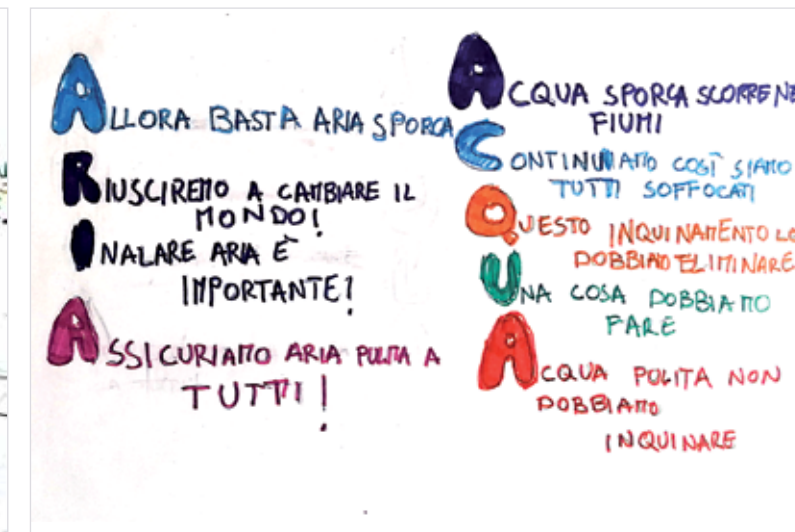 ALLORA BASTA ARIA SPORCA
RIUSCIREMO A CAMBIARE IL
MONDO!
INALARE ARIA È
IMPORTANTE!
ASSICURIAMO ARIA PULITA A
TUTTI!
ACQUA SPORCA SCORRE NE
FIUMI
CONTINUIAMO COSÌ SIAMO
TUTTI SOFFOCATI
QUESTO INQUINAMENTO LO
DOBBIAMO ELIMINARE
UNA COSA DOBBIAMO
FARE
ACQUA PULITA NON
DOBBIAMO
INQUINARE